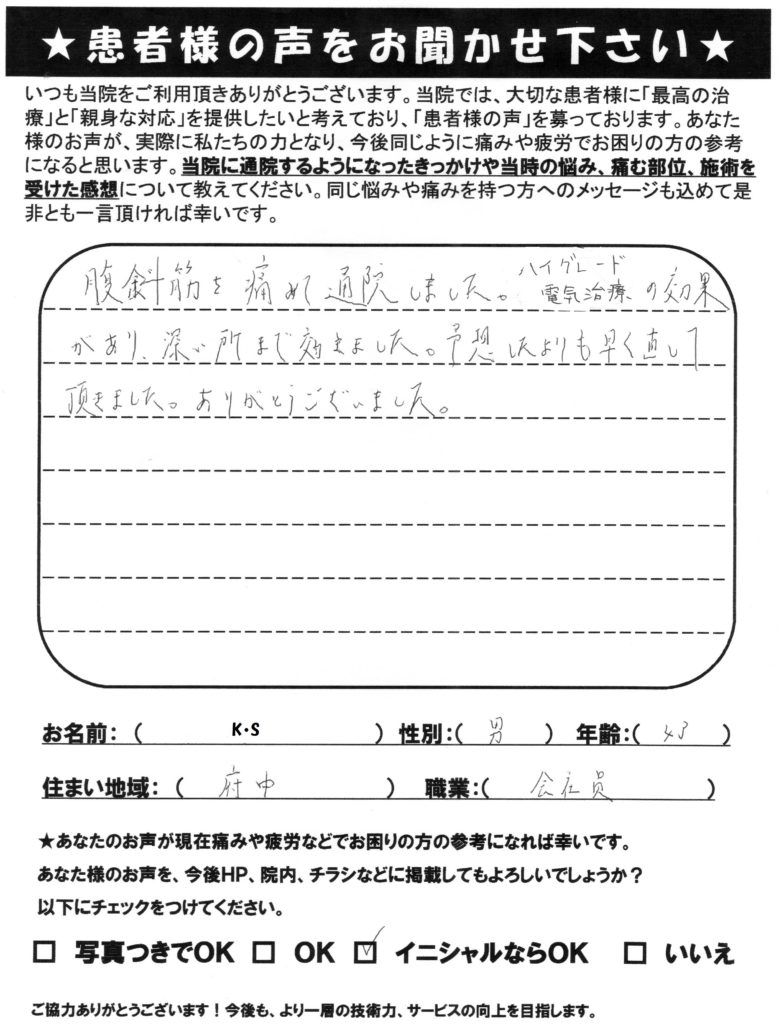 ★患者様の声をお聞かせ下さい★
いつも当院をご利用頂きありがとうございます。当院では、大切な患者様に「最高の治
療」と「親身な対応」を提供したいと考えており、「患者様の声」を募っております。あなた
様のお声が、実際に私たちの力となり、今後同じように痛みや疲労でお困りの方の参考
になると思います。当院に通院するようになったきっかけや当時の悩み、痛む部位、施術を
受けた感想について教えてください。同じ悩みや痛みを持つ方へのメッセージも込めて是
非とも一言頂ければ幸いです。
腹斜筋を痛めて通院しました。ハイグレード電気治療の効果
があり、深い所まで効きました。予想したよりも早く直して
頂きました。ありがとうございました。
お名前：（ K・S ） 性別：（ 男 ） 年齢：（ 43 ）
住まい地域：（ 府中 ） 職業：（ 会社員 ）
★あなたのお声が現在痛みや疲労などでお困りの方の参考になれば幸いです。
あなた様のお声を、今後HP、院内、チラシなどに掲載してもよろしいでしょうか？
以下にチェックをつけてください。
□ 写真つきでOK □ OK ☑ イニシャルならOK □ いいえ
ご協力ありがとうございます！今後も、より一層の技術力、サービスの向上を目指します。